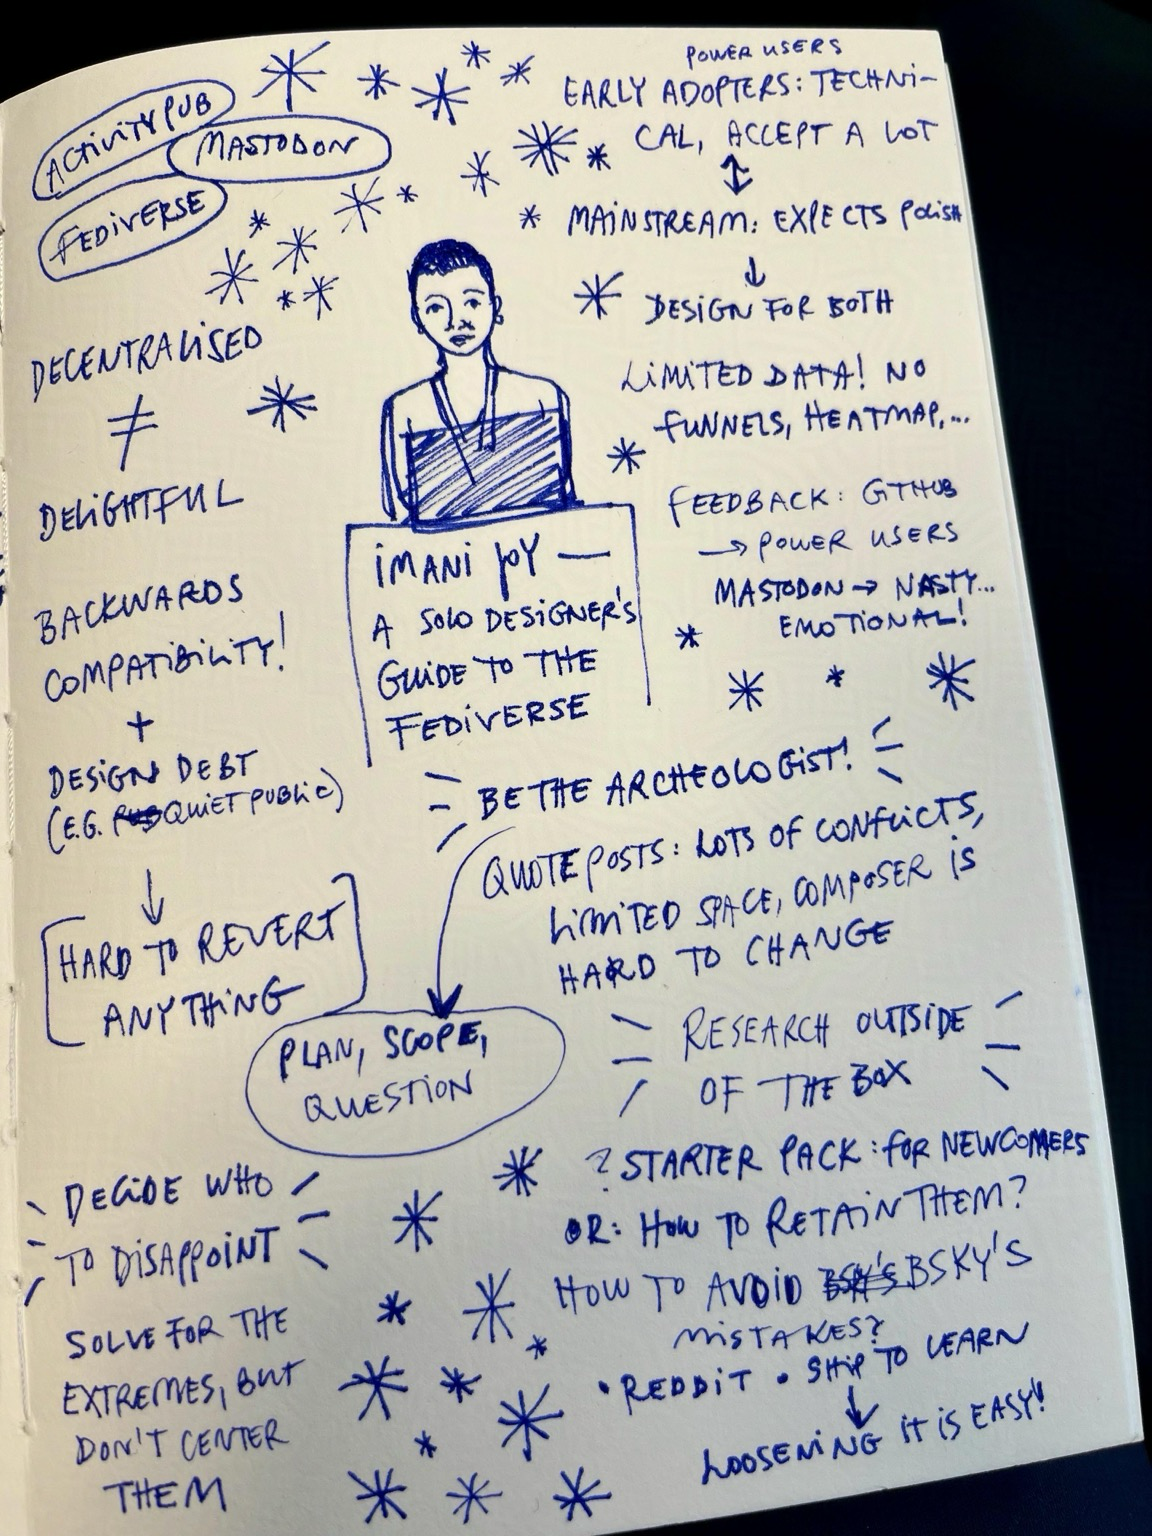 ACTIVITYPUB
MASTODON
FEDIVERSE
DECENTRALISED
≠
DELIGHTFUL
BACKWARDS
COMPATIBILITY!
+
DESIGN DEBT
(E.G. QUIET PUBLIC)
↓
[HARD TO REVERT
ANYTHING]
POWER USERS
EARLY ADOPTERS: TECHNI-
CAL, ACCEPT A LOT
↕
MAINSTREAM: EXPECTS POLISH
↓
DESIGN FOR BOTH
LIMITED DATA! NO
FUNNELS, HEATMAP,...
FEEDBACK: GTHUB
→ POWER USERS
MASTODON → NASTY...
EMOTIONAL!
IMANI JOY —
A SOLO DESIGNER'S
GUIDE TO THE
FEDIVERSE
BE THE ARCHEOLOGIST!
QUOTE POSTS: LOTS OF CONFLICTS,
LIMITED SPACE, COMPOSER IS
HARD TO CHANGE
PLAN, SCOPE,
QUESTION
RESEARCH OUTSIDE
OF THE BOX
? STARTER PACK: FOR NEWCOMERS
OR: HOW TO RETAIN THEM?
HOW TO AVOID BSKY'S
MISTAKES?
• REDDIT • SHIP TO LEARN
↓
LOOSENING IT IS EASY!
DECIDE WHO
TO DISAPPOINT
SOLVE FOR THE
EXTREMES, BUT
DON'T CENTER
THEM